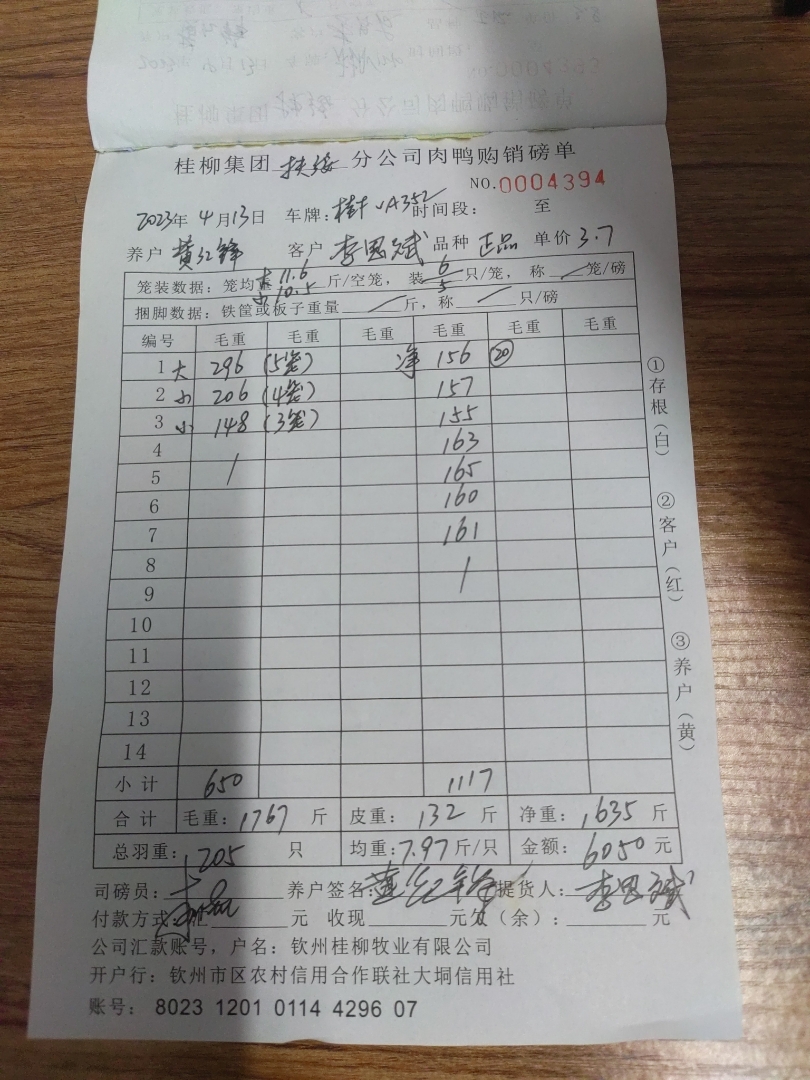 桂柳集团 扶绥 分公司肉鸭购销磅单
NO.0004394
2023年 4月13日 车牌：桂 A352 时间段： 至
养户 黄红锋 客户 李思斌 品种 正品 单价 3.7
笼装数据：笼均重 大11.6 小10.5 斤/空笼，装 6/5 只/笼，称 / 笼/磅
捆脚数据：铁筐或板子重量 / 斤，称 / 只/磅
编号 毛重 毛重 毛重 毛重 毛重 毛重
1 大 296 (5笼) 净 156 ⑳
2 小 206 (4笼) 157
3 小 148 (3笼) 155
4 163
5 / 165
6 160
7 161
8 /
9
10
11
12
13
14
小计 650 1117
合计 毛重：1767 斤 皮重：132 斤 净重：1635 斤
总羽重：205 只 均重：7.97斤/只 金额：6050 元
司磅员： 养户签名：黄红锋 提货人：李思斌
付款方式：汇 元 收现 元欠（余）： 元
公司汇款账号，户名：钦州桂柳牧业有限公司
开户行：钦州市区农村信用合作联社大垌信用社
账号：8023 1201 0114 4296 07
①存根（白） ②客户（红） ③养户（黄）